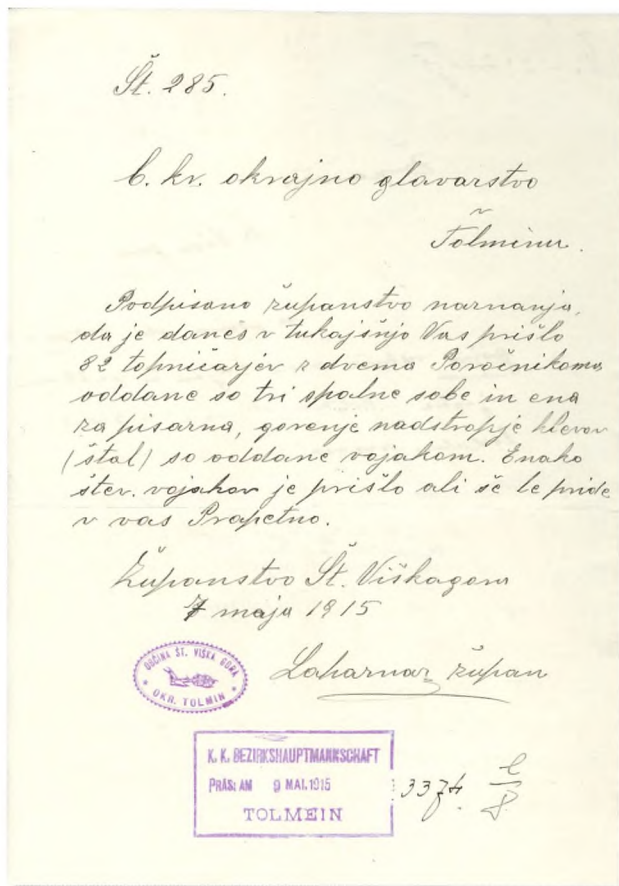 Št. 285.
C. kr. okrajno glavarstvo
v
Tolminu.
Podpisano županstvo naznanja,
da je danes v tukajšnjo Vas prišlo
82 topničarjev z dvema Poročnikoma
oddane so tri spalne sobe in ena
za pisarna, gorenje nadstropje hlevov
(štal) so oddane vojakom. Enako
štev. vojakov je prišlo ali še le pride
v vas Prapetno.
Županstvo Št. Viškagora
7 maja 1915
Laharnar župan
OBČINA ŠT. VIŠKA GORA
* OKR. TOLMIN *
K. K. BEZIRKSHAUPTMANNSCHAFT
PRÄS: AM 9 MAI. 1915
TOLMEIN